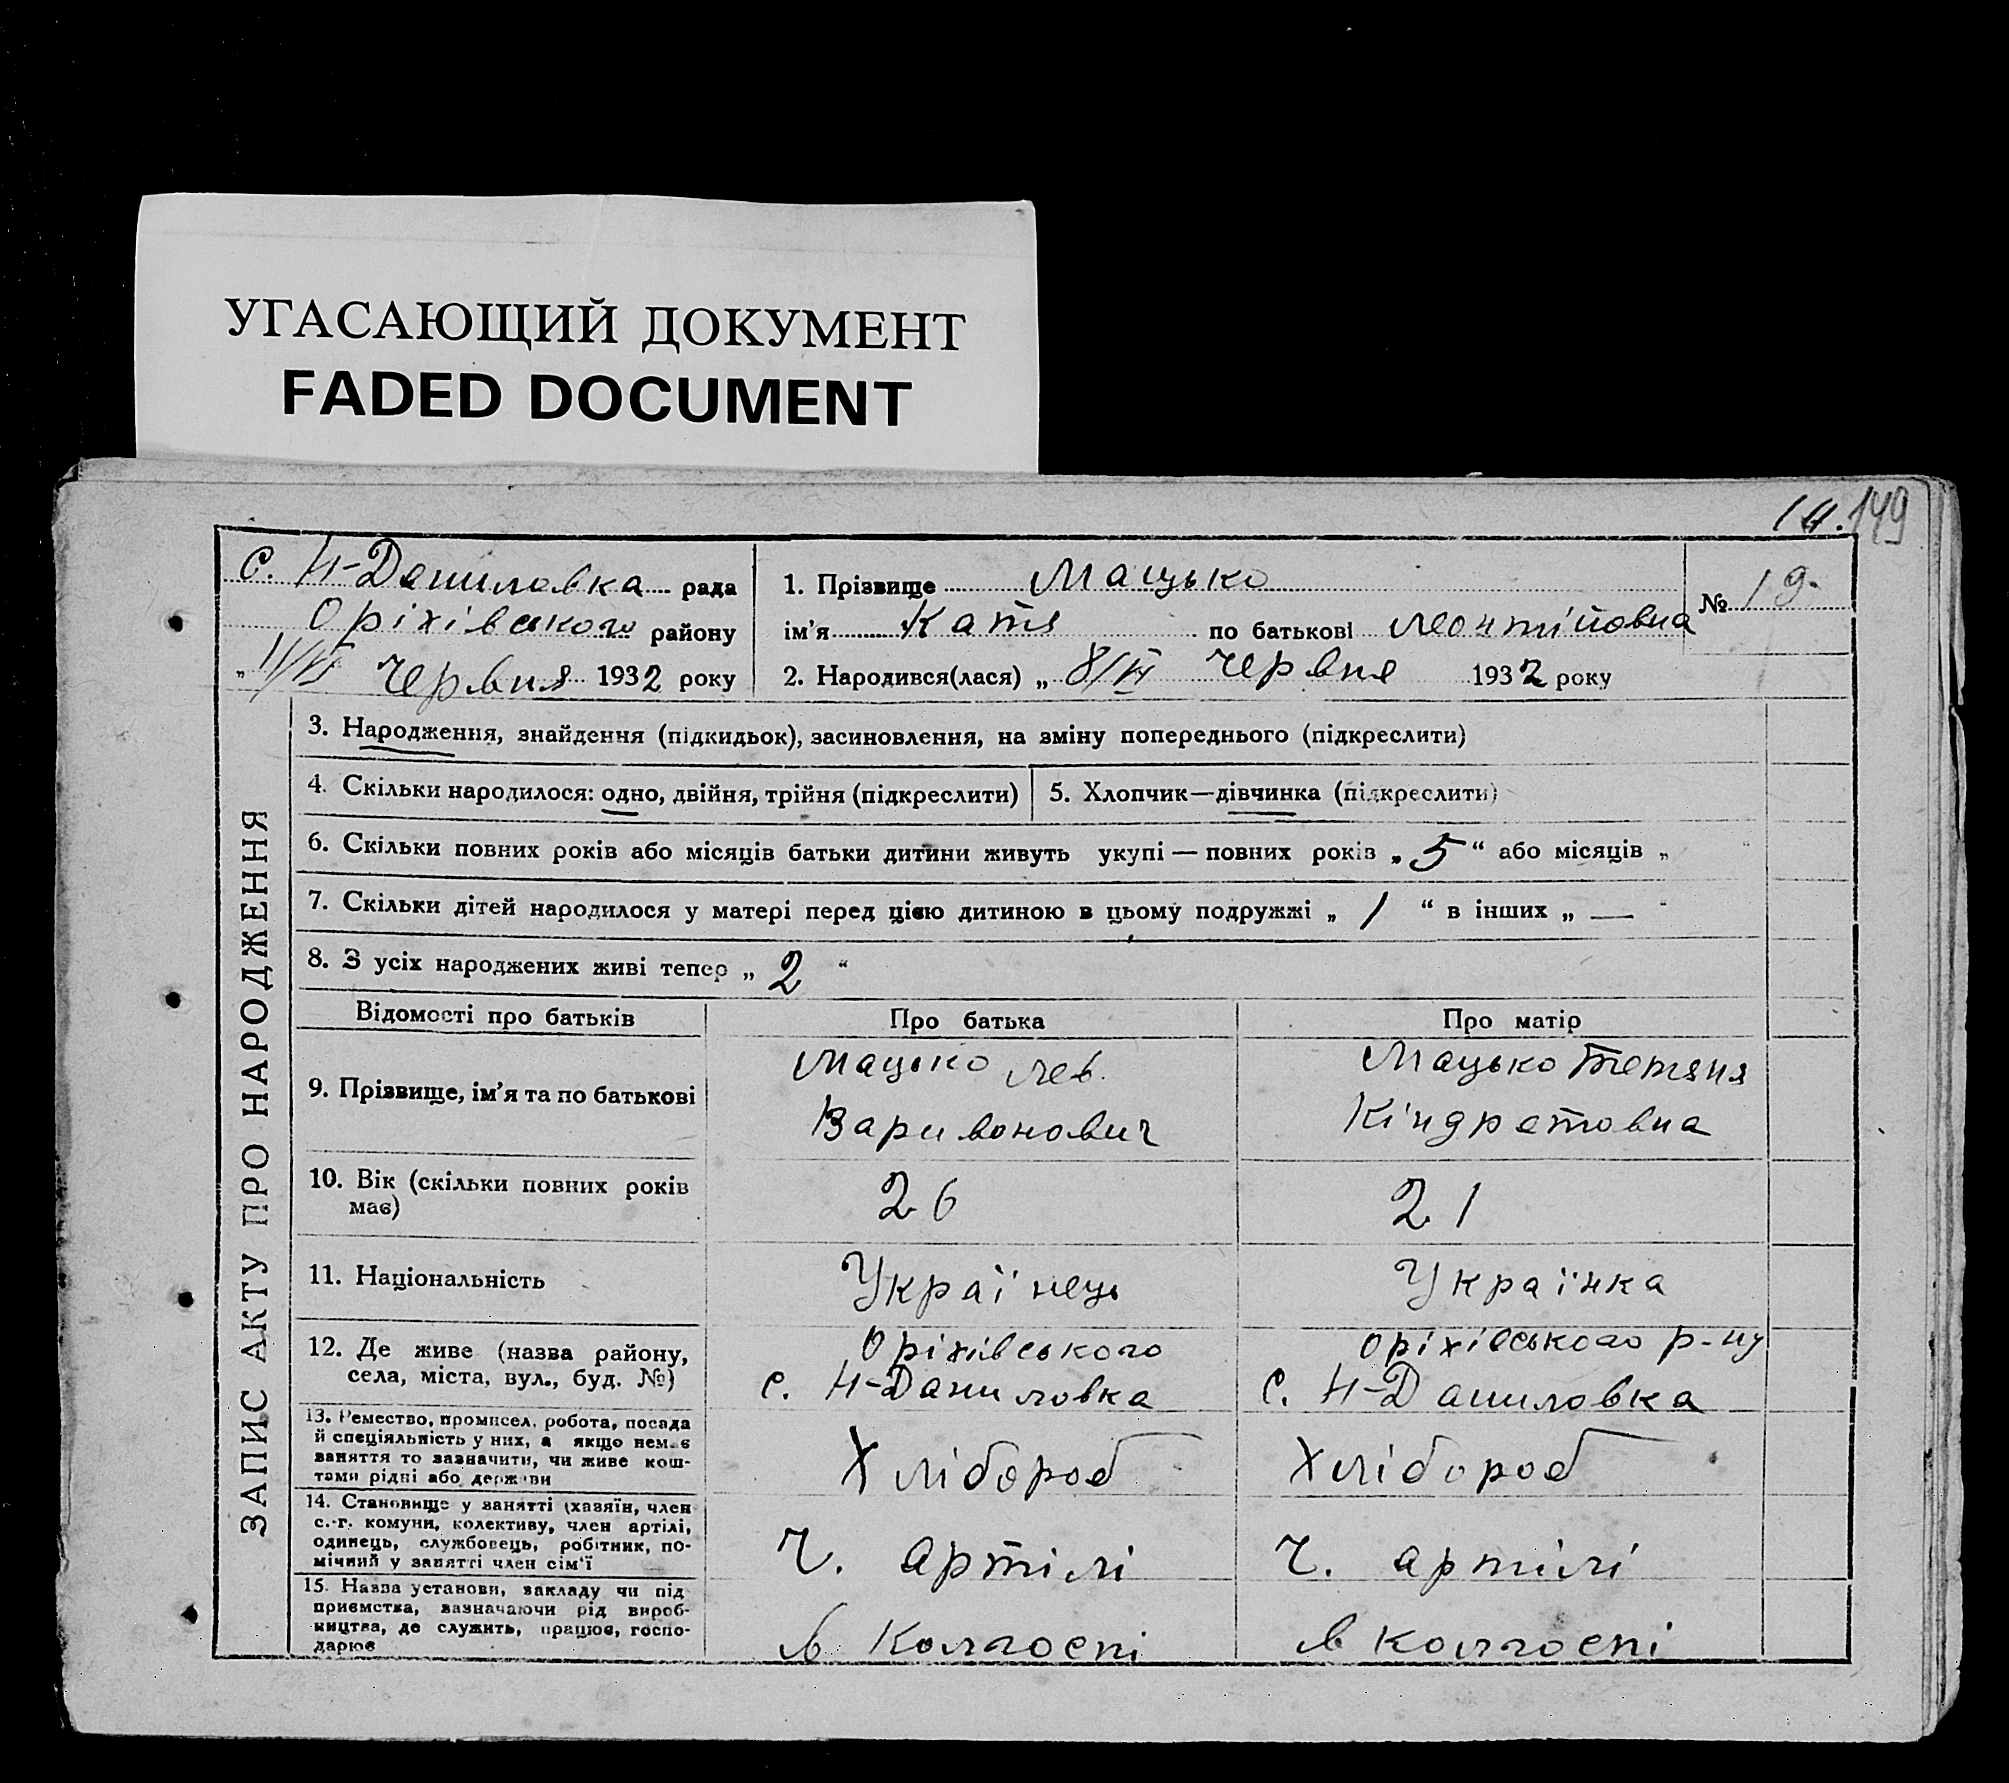 УГАСАЮЩИЙ ДОКУМЕНТ
FADED DOCUMENT
149
с. Н-Даниловка рада
Оріхівського району
„ 11/VI Червня 1932 року
1. Прізвище Мацько
№ 19.
ім'я Катя по батькові Леонтійовна
2. Народився(лася) „ 8/VI Червня 1932 року
ЗАПИС АКТУ ПРО НАРОДЖЕННЯ
3. Народження, знайдення (підкидьок), засиновлення, на зміну попереднього (підкреслити)
4. Скільки народилося: одно, двійня, трійня (підкреслити)
5. Хлопчик—дівчинка (підкреслити)
6. Скільки повних років або місяців батьки дитини живуть укупі — повних років „ 5 “ або місяців „ “
7. Скільки дітей народилося у матері перед цією дитиною в цьому подружжі „ 1 “ в інших „ — “
8. З усіх народжених живі тепер „ 2 “
Відомості про батьків
Про батька
Про матір
9. Прізвище, ім'я та по батькові
Мацько Лев.
Варивонович
Мацько Тетяня
Кіндратовна
10. Вік (скільки повних років
має)
26
21
11. Національність
Українець
Українка
12. Де живе (назва району,
села, міста, вул., буд. №)
Оріхівського
с. Н-Даниловка
Оріхівського р-ну
с. Н-Даниловка
13. Ремество, промисел, робота, посада
й спеціяльність у них, а якщо немає
заняття то зазначити, чи живе кош-
тами рідні або держави
Хлібороб
Хлібороб
14. Становище у занятті (хазяїн, член
с.-г. комуни, колективу, член артілі,
одинець, службовець, робітник, по-
мічний у занятті член сім'ї
Ч. артілі
Ч. артілі
15. Назва установи, закладу чи під
приємства, зазначаючи рід вироб-
ництва, де служить, працює, госпо-
дарює
в Колгоспі
в колгоспі